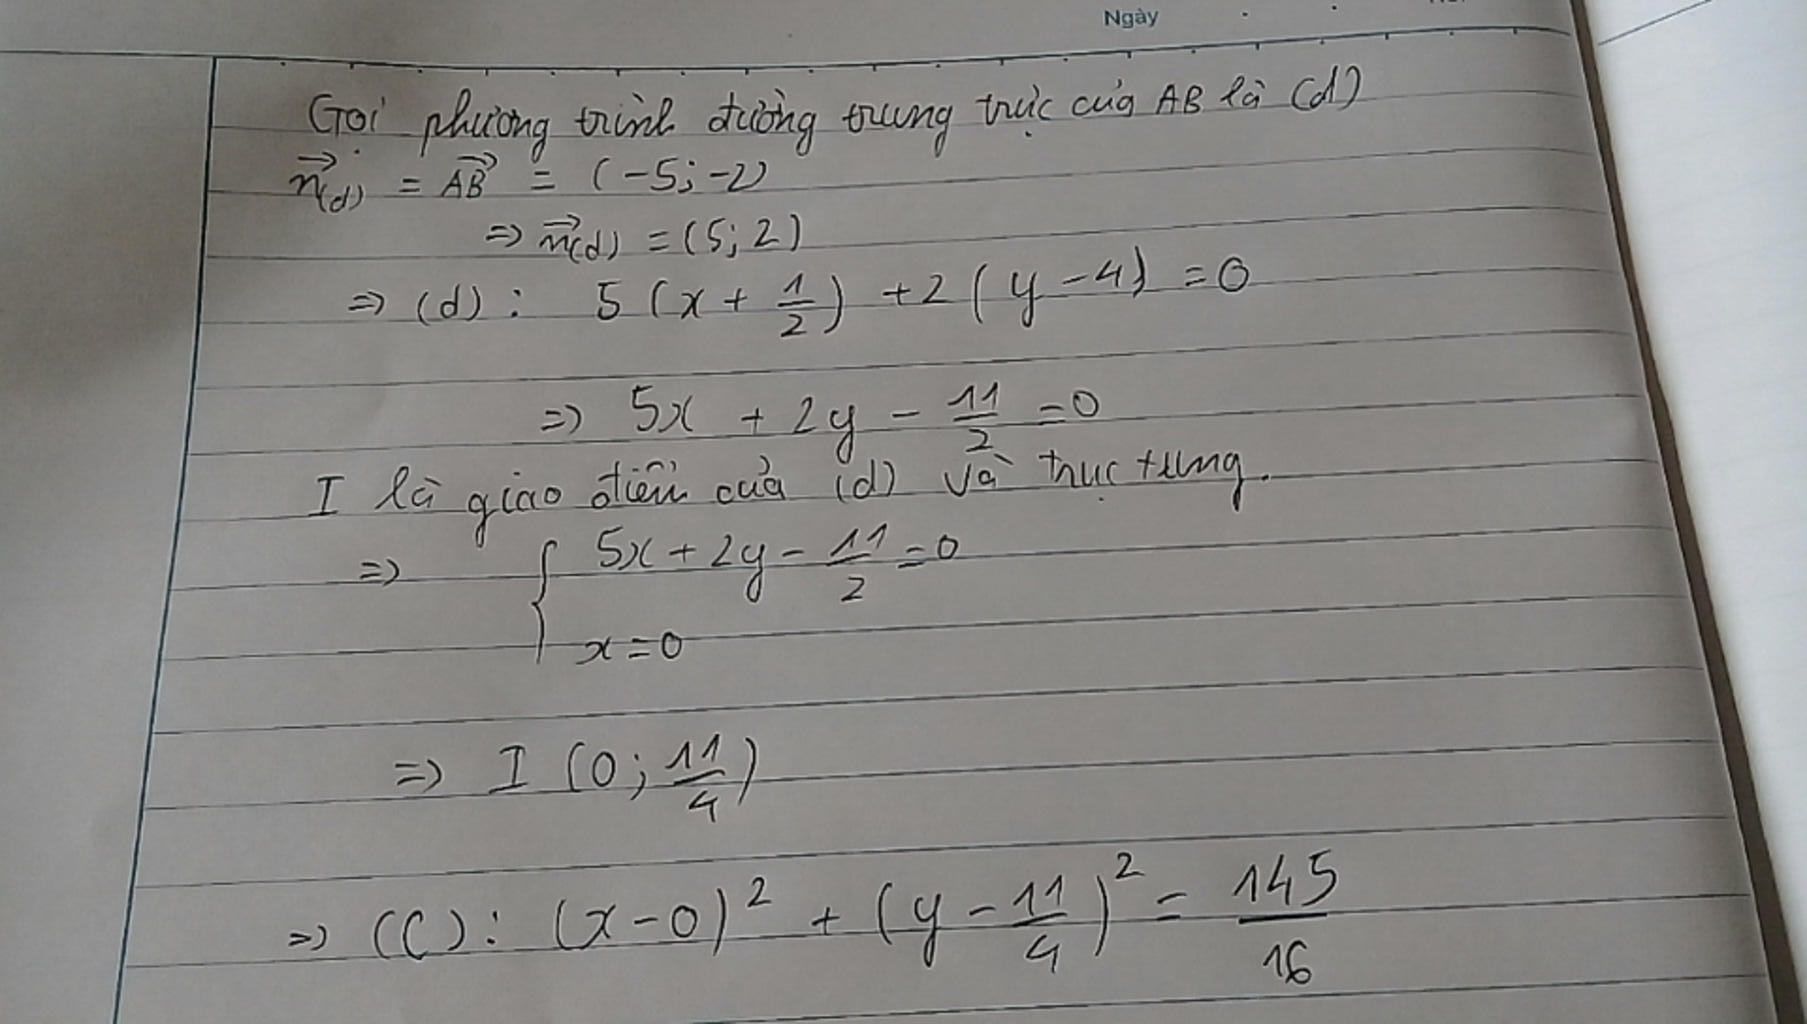 Ngày
Gọi phương trình đường trung trực của AB là (d)
$\vec{n}_{(d)} = \vec{AB} = (-5; -2)$
$\Rightarrow \vec{n}_{(d)} = (5; 2)$
$\Rightarrow (d): 5(x + \frac{1}{2}) + 2(y - 4) = 0$
$\Rightarrow 5x + 2y - \frac{11}{2} = 0$
I là giao điểm của (d) và trục tung.
$\Rightarrow \begin{cases} 5x + 2y - \frac{11}{2} = 0 \\ x = 0 \end{cases}$
$\Rightarrow I (0; \frac{11}{4})$
$\Rightarrow (C): (x - 0)^2 + (y - \frac{11}{4})^2 = \frac{145}{16}$